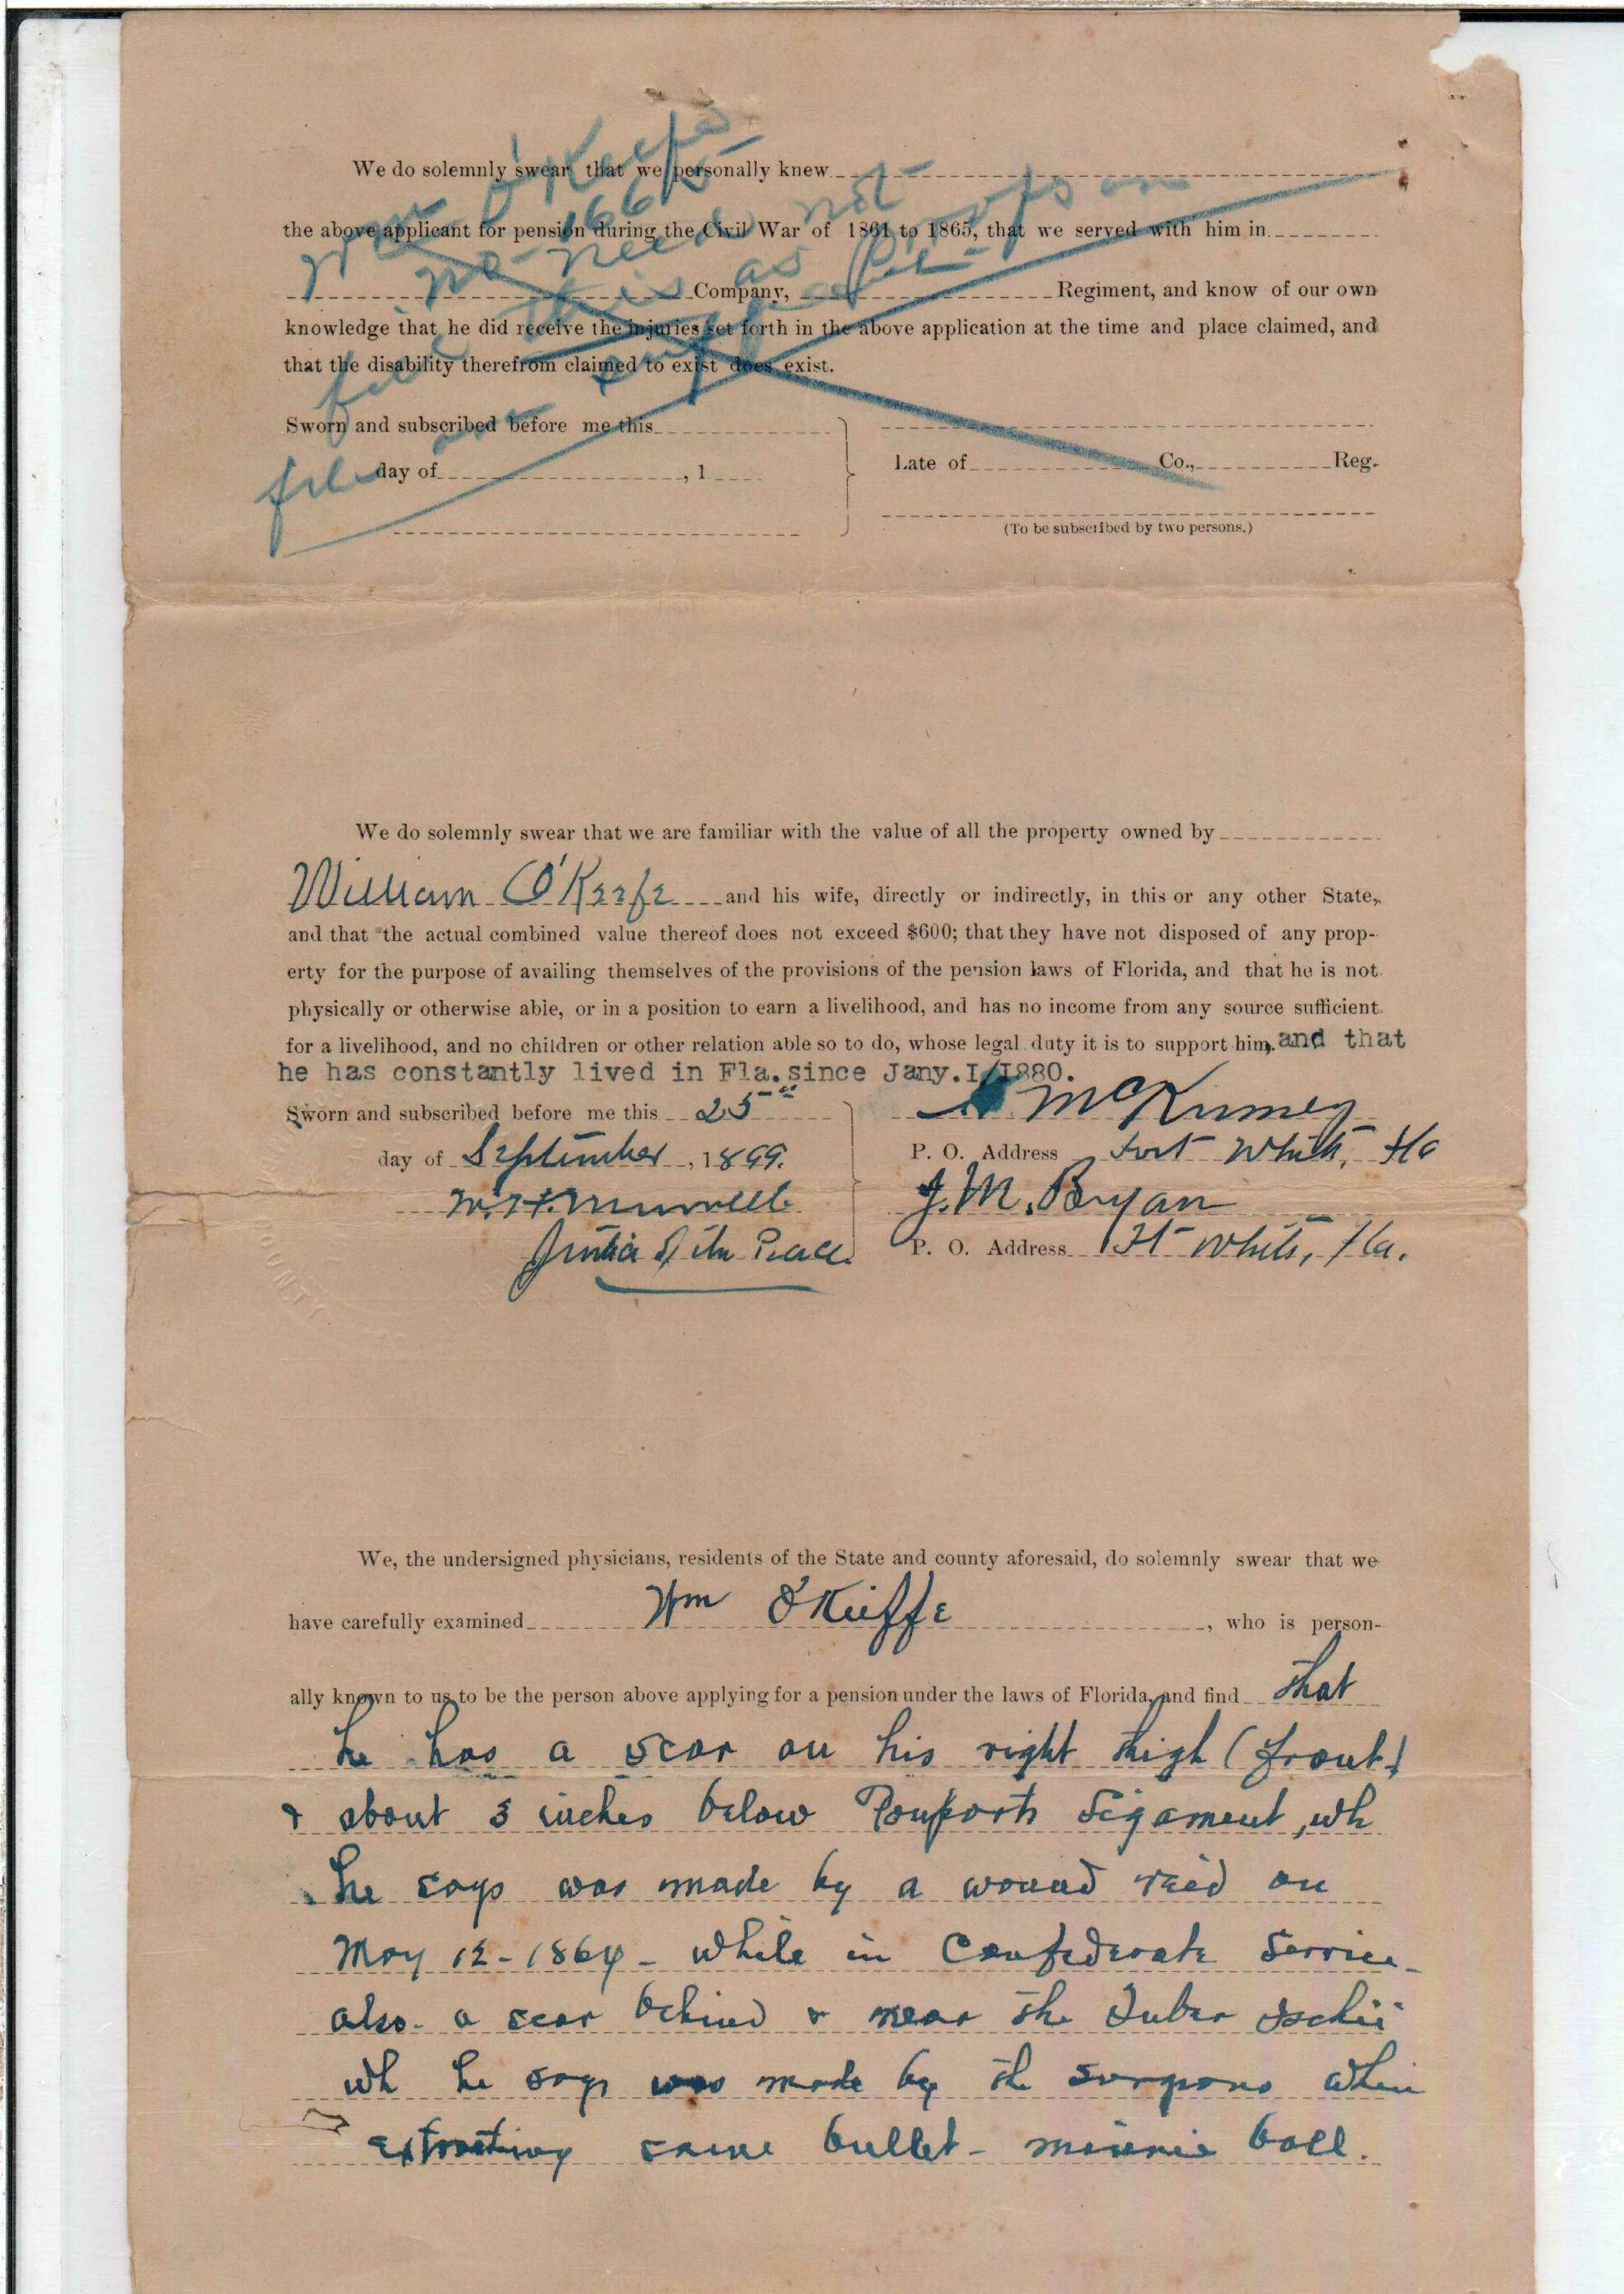 We do solemnly swear that we personally knew
the above applicant for pension during the Civil War of 1861 to 1865, that we served with him in
Company, Regiment, and know of our own
knowledge that he did receive the injuries set forth in the above application at the time and place claimed, and
that the disability therefrom claimed to exist does exist.
Sworn and subscribed before me this
day of , 1
Late of Co., Reg.
(To be subscribed by two persons.)
Wm O'Keefe
no need not
file this as
file
We do solemnly swear that we are familiar with the value of all the property owned by
William O'Keefe and his wife, directly or indirectly, in this or any other State,
and that the actual combined value thereof does not exceed $600; that they have not disposed of any prop-
erty for the purpose of availing themselves of the provisions of the pension laws of Florida, and that he is not
physically or otherwise able, or in a position to earn a livelihood, and has no income from any source sufficient
for a livelihood, and no children or other relation able so to do, whose legal duty it is to support him, and that
he has constantly lived in Fla. since Jany. I/I880.
Sworn and subscribed before me this 25th
day of September, 1899.
McKinney
P. O. Address Fort White, Fla
J. M. Bryan
P. O. Address Ft White, Fla.
COUNTY
We, the undersigned physicians, residents of the State and county aforesaid, do solemnly swear that we
have carefully examined Wm O'Kieffe , who is person-
ally known to us to be the person above applying for a pension under the laws of Florida, and find that
he has a scar on his right thigh (front)
& about 3 inches below Pouparts Ligament, wh
he says was made by a wound recd on
May 12-1864- while in Confederate Service-
also- a scar behind & near the Tuber Ischii
wh he says was made by th surgeons when
extracting same bullet- minnie ball.